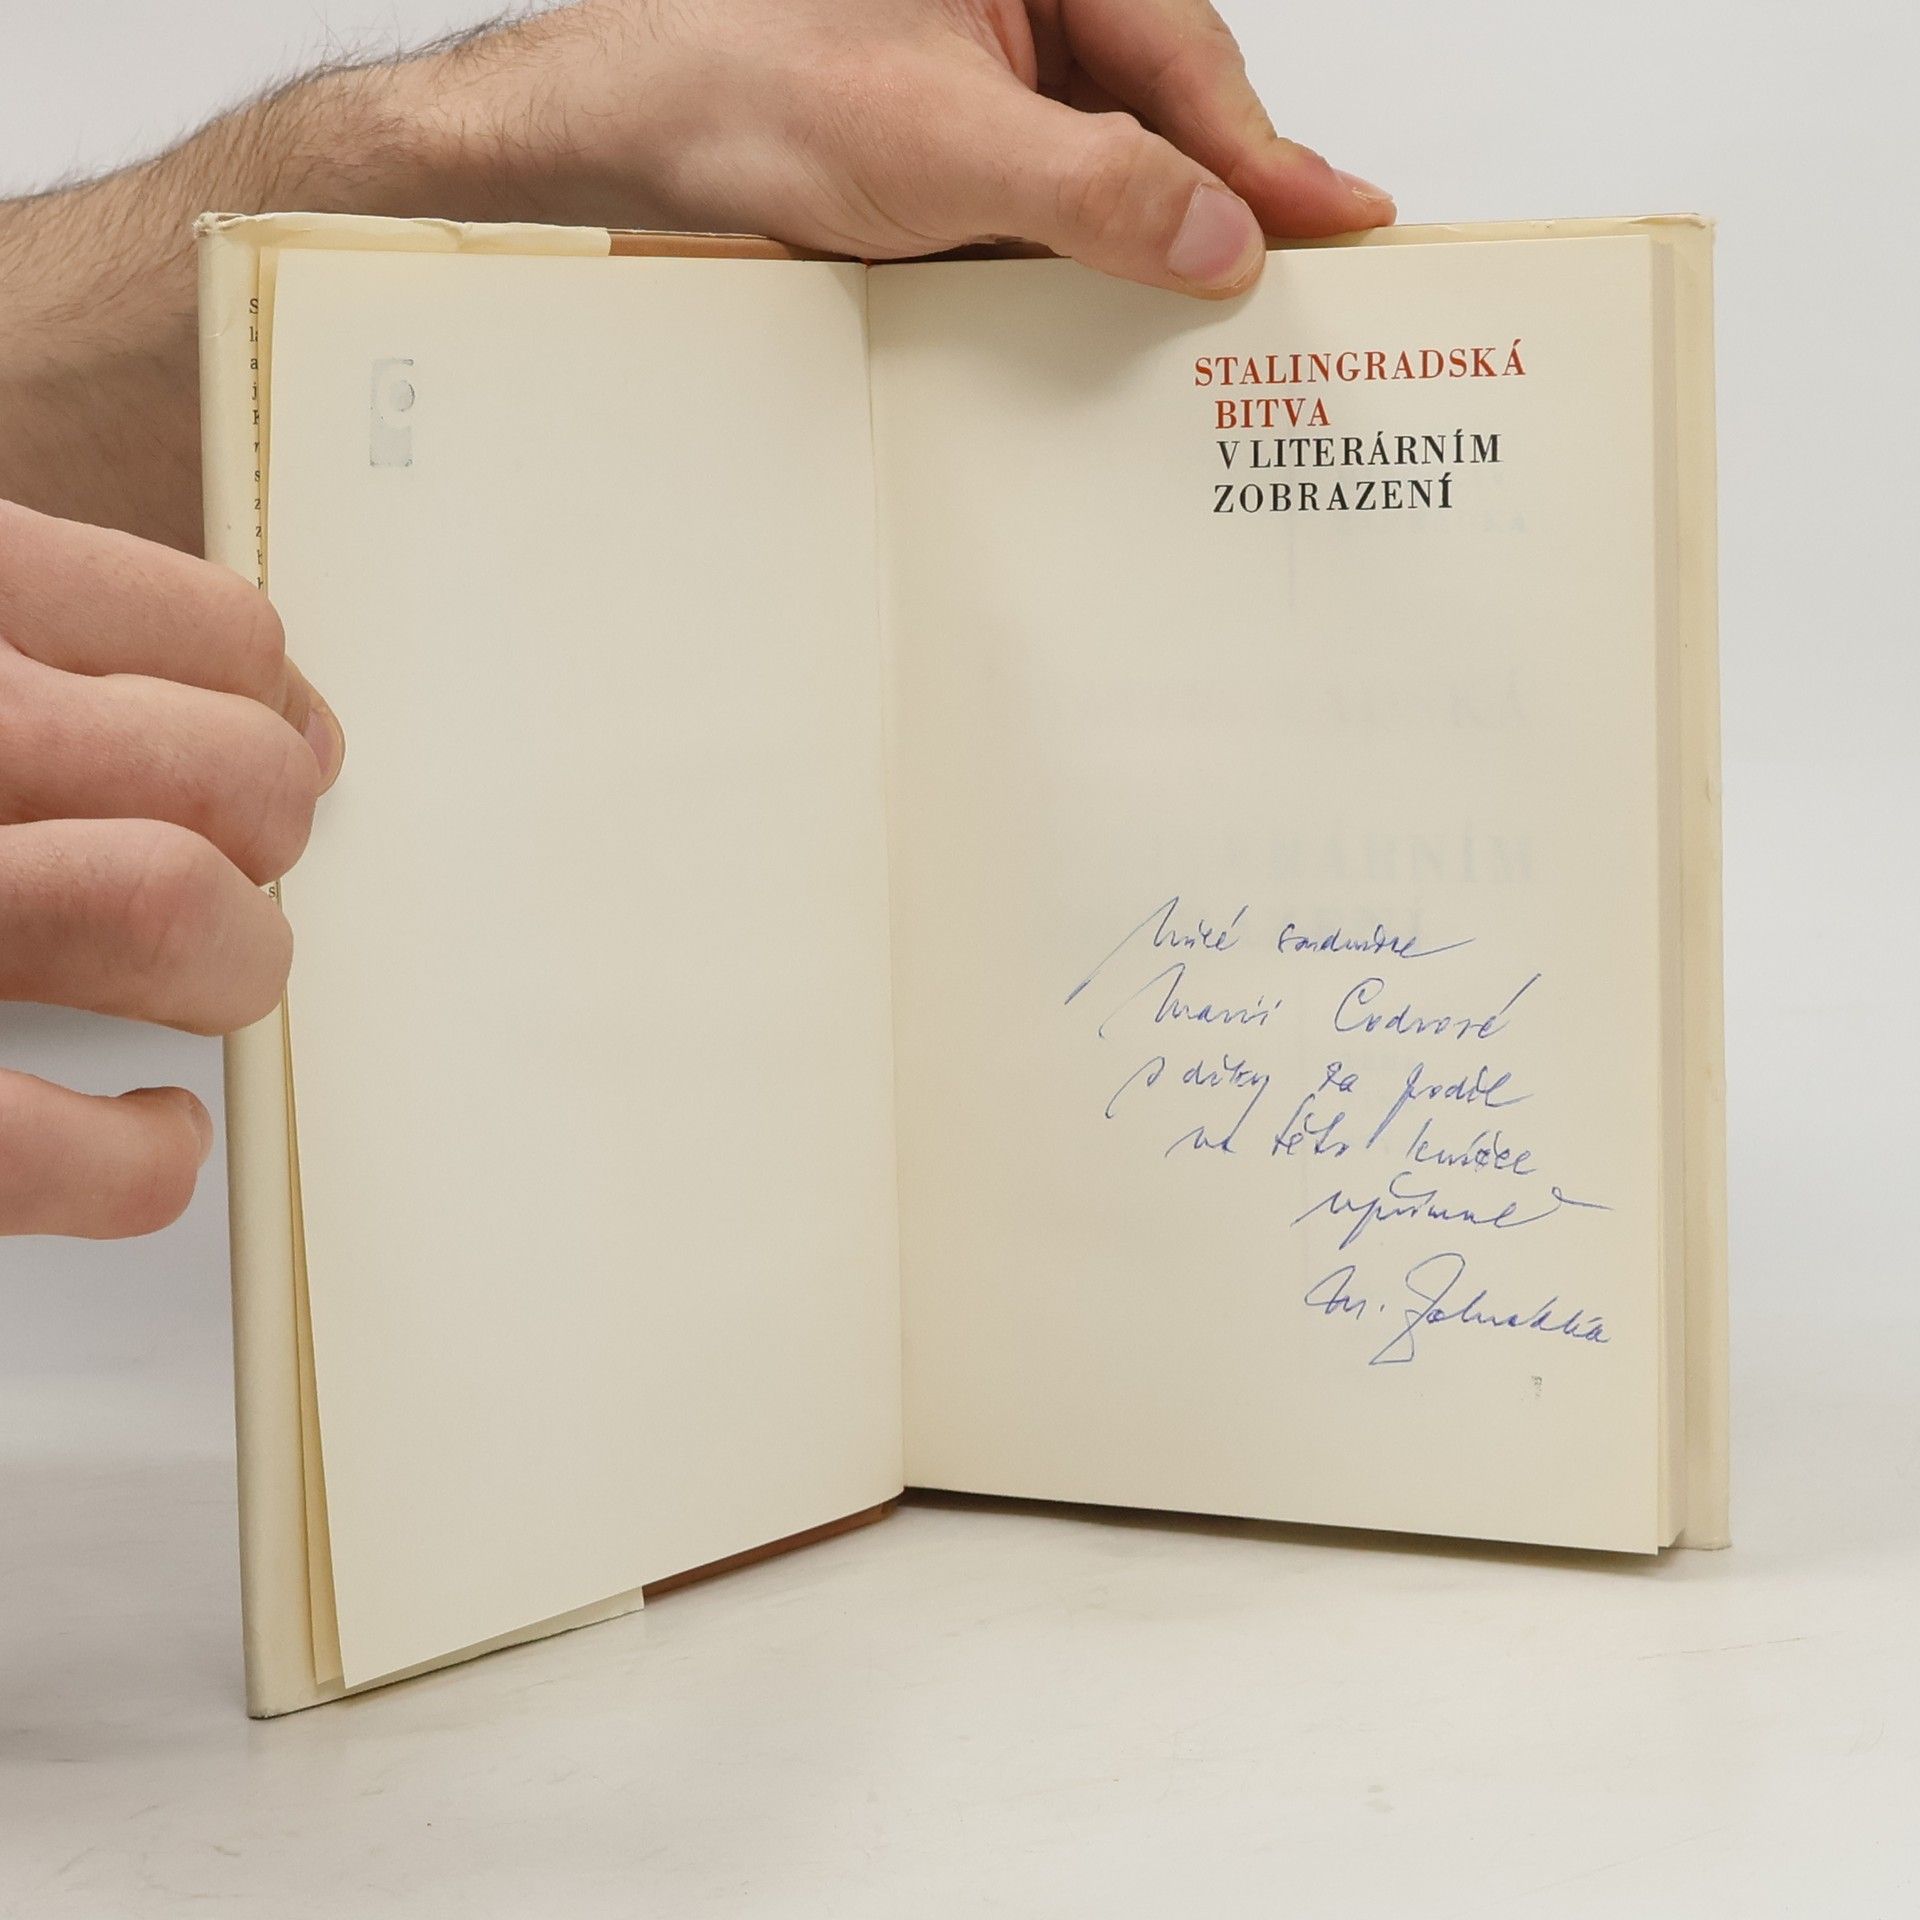 STALINGRADSKÁ
BITVA
V LITERÁRNÍM
ZOBRAZENÍ
Milé soudružce
Marii Codrové
s díky za podíl
na této knížce
upřímně
M. Zahrádka